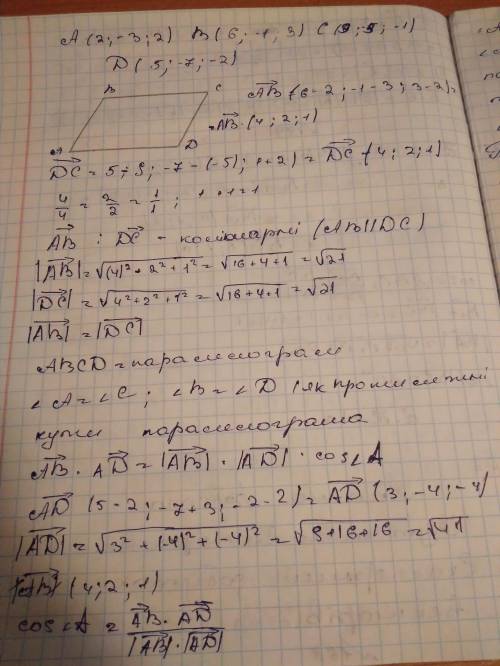 A (2; -3; 2) B (6; -1; 3) C (9; -5; -1)
D (5; -7; -2)
B C
AB (6-2; -1-3; 3-2);
AB (4; 2; 1)
A D
DC = 5-9; -7-(-5); 1+2) = DC (4; 2; 1)
4/4 = 2/2 = 1/1 ; 1=1=1
AB i DC - колінарні (AB||DC)
|AB| = √(4)²+2²+1² = √16+4+1 = √21
|DC| = √4²+2²+1² = √16+4+1 = √21
|AB| = |DC|
ABCD = паралелограм
∠A = ∠C ; ∠B = ∠D (як протилежні
кути паралелограма
AB · AD = |AB| · |AD| · cos∠A
AD (5-2; -7+3; -2-2) = AD (3; -4; -4)
|AD| = √3²+(-4)²+(-4)² = √9+16+16 = √41
AB (4; 2; 1)
cos∠A = AB · AD / |AB| · |AD|